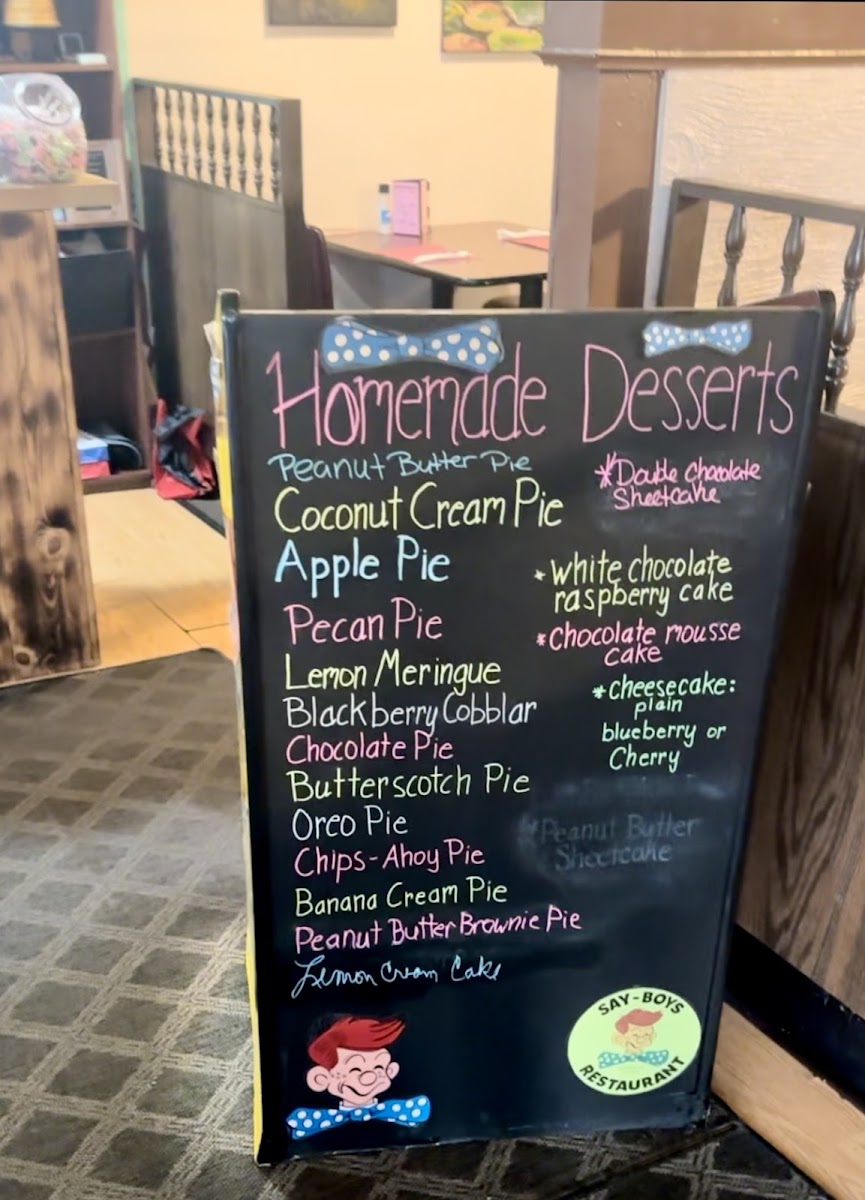 Homemade Desserts
Peanut Butter Pie
Coconut Cream Pie
Apple Pie
Pecan Pie
Lemon Meringue
Blackberry Cobblar
Chocolate Pie
Butterscotch Pie
Oreo Pie
Chips-Ahoy Pie
Banana Cream Pie
Peanut Butter Brownie Pie
Lemon Cream Cake
*Double Chocolate
Sheetcake
*white chocolate
raspberry cake
*chocolate mousse
cake
*cheesecake:
plain
blueberry or
Cherry
*Peanut Butter
Sheetcake
SAY-BOYS
RESTAURANT